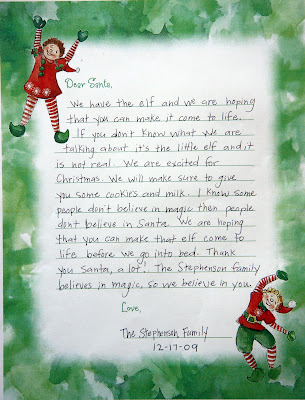 Dear Santa,
We have the elf and we are hoping
that you can make it come to life.
If you don't know what we are
talking about it's the little elf and it
is not real. We are excited for
Christmas. We will make sure to give
you some cookies and milk. I know some
people don't believe in magic then people
don't believe in Santa. We are hoping
that you can make that elf come to
life before we go into bed. Thank
you Santa, a lot! The Stephenson family
believes in magic, so we believe in you.
Love,
The Stephenson Family
12-17-09